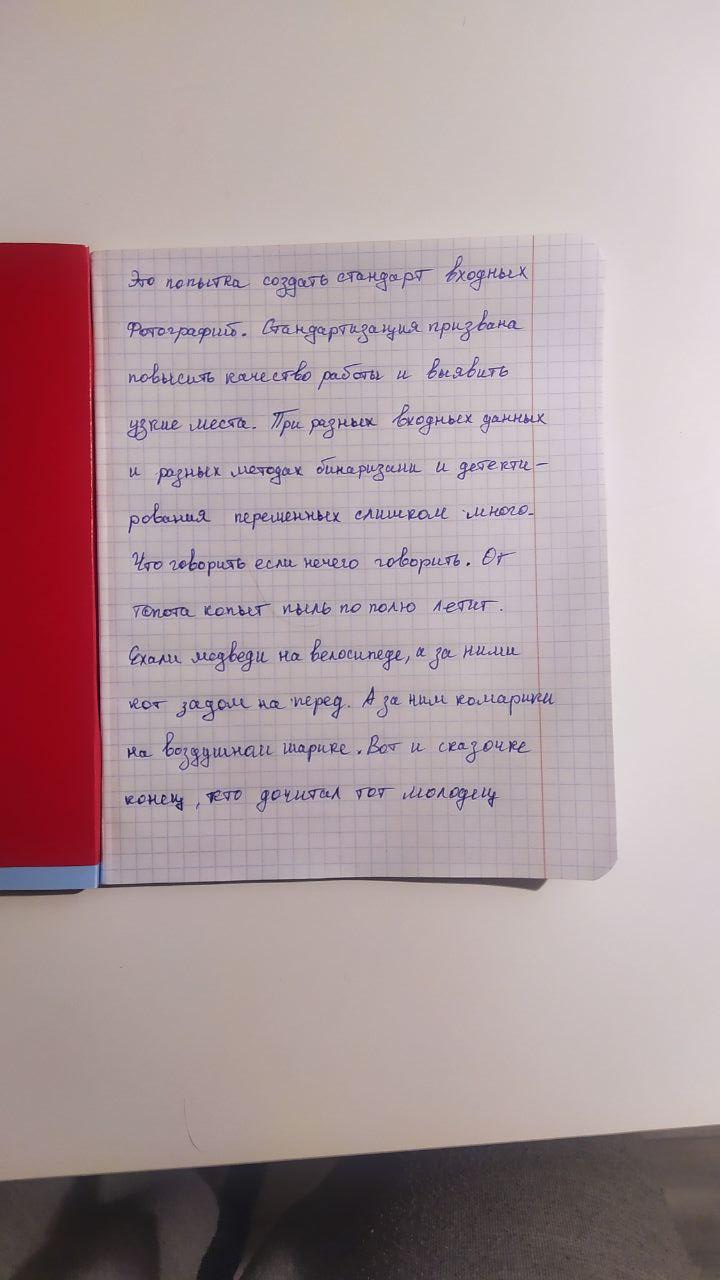 Это попытка создать стандарт входных
Фотографий. Стандартизация призвана
повысить качество работы и выявить
узкие места. При разных входных данных
и разных методах бинаризани и детекти-
рования переменных слишком много.
Что говорить если нечего говорить. От
топота копыт пыль по полю летит.
Ехали медведи на велосипеде, а за ними
кот задом на перед. А за ним комарики
на воздушном шарике. Вот и сказочке
конец, кто дочитал тот молодец